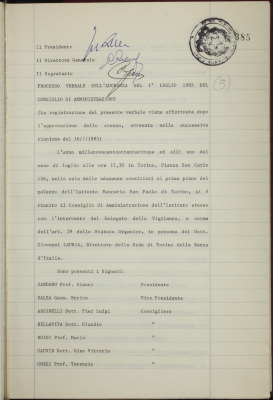 385
Il Presidente
Il Direttore Generale
Il Segretario
(5)
PROCESSO VERBALE DELL'ADUNANZA DEL 1° LUGLIO 1985 DEL
CONSIGLIO DI AMMINISTRAZIONE
(La registrazione del presente verbale viene effettuata dopo
l'approvazione dello stesso, avvenuta nella successiva
riunione del 16/7/1985)
L'anno millenovecentottantacinque ad allì uno del
mese di luglio alle ore 15,30 in Torino, Piazza San Carlo
156, nella sala delle adunanze consiliari al primo piano del
palazzo dell'Istituto Bancario San Paolo di Torino, si è
riunito il Consiglio di Amministrazione dell'Istituto stesso
con l'intervento del Delegato della Vigilanza, a norma
dell'art. 29 dello Statuto Organico, in persona del Dott.
Giovanni LAURIA, Direttore della Sede di Torino della Banca
d'Italia.
Sono presenti i Signori:
ZANDANO Prof. Gianni Presidente
SALZA Geom. Enrico Vice Presidente
Dott. Pier Luigi Consigliere
BELLAVITA Dott. Claudio "
Prof. Mario "
Dott. Gian Vittorio "
COZZI Prof. Terenzio "